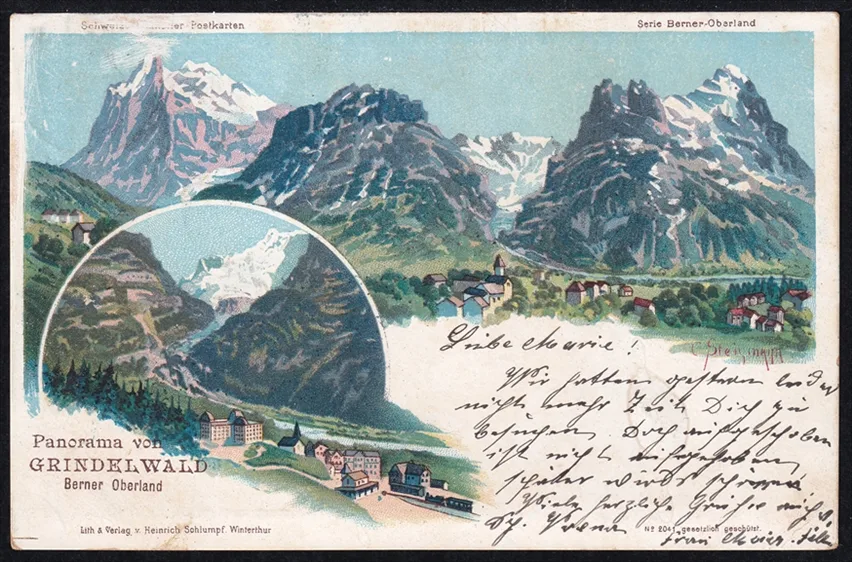 Postkarten
Serie Berner-Oberland
C. Steinmann
Panorama von
GRINDELWALD
Berner Oberland
Lith & Verlag v. Heinrich Schlumpf. Winterthur
Liebe Marie!
Wir hatten gestern leider
nicht mehr Zeit Dich zu
besuchen. Doch aufgeschoben
ist nicht aufgehoben
später wird's
Viele herzliche Grüße
Nº 2041 gesetzlich geschützt.
Frau Maier